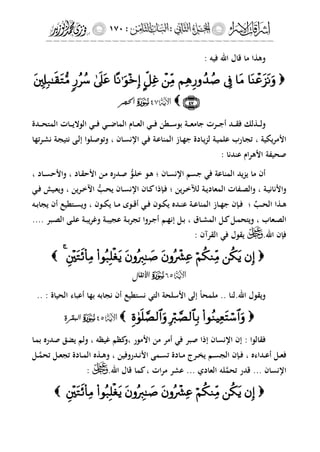 إشراقات الإسلام : المجلد الثاني : الباب الثامن : ١٧٠
وهذا ما قال الله فيه :
﴿ وَنَزَعْنَا مَا فِى صُدُورِهِم مِّنْ غِلٍّ إِخْوَٰنًا عَلَىٰ سُرُرٍ مُّتَقَٰبِلِينَ
٤٧ ﴾ ٤٧ الحجر
ولذلك فقد أجرت جامعة بوسطن في العام الماضي في الولايات المتحدة
الأمريكية ، تجارب علمية لزيادة جهاز المناعة في الإنسان ، وتوصلوا إلى نتيجة نشرتها
صحيفة الأهرام عندنا :
أن ما يزيد المناعة في جسم الإنسان ؛ هو خلوّ صدره من الأحقاد ، والأحساد ،
والأنانية ، والصفات المعادية للآخرين ، فإذا كان الإنسان يحبّ الآخرين ، ويعيش في
هذا الحب ؛ فإن جهاز المناعة عنده يكون في أقوى ما يكون ، ويستطيع أن يجابه
الصعاب ، ويتحمل كل المشاق ، بل إنهم أجروا تجربة عجيبة وغريبة على الصبر ....
فإن الله يقول في القرآن :
﴿ إِن يَكُن مِّنكُمْ عِشْرُونَ صَٰبِرُونَ يَغْلِبُوا۟ مِا۟ئَتَيْنِ ۚ
﴾ ٦٥ الأنفال
ويقول الله لنا .. ملمحاً إلى الأسلحة التي نستطيع أن نجابه بها أعباء الحياة : ..
﴿ وَٱسْتَعِينُوا۟ بِٱلصَّبْرِ وَٱلصَّلَوٰةِ ﴾ ٤٥ البقرة
فقالوا : إن الإنسان إذا صبر في أمر من الأمور ، وكظم غيظه ، ولم يضق صدره بما
فعل أعداءه ، فإن الجسم يخرج مادة تسمى الأندروفين ، وهذه المادة تجعل تحمّل
الإنسان ... قدر تحمّله العادي ... عشر مرات ، كما قال الله :
﴿ إِن يَكُن مِّنكُمْ عِشْرُونَ صَٰبِرُونَ يَغْلِبُوا۟ مِا۟ئَتَيْنِ ﴾